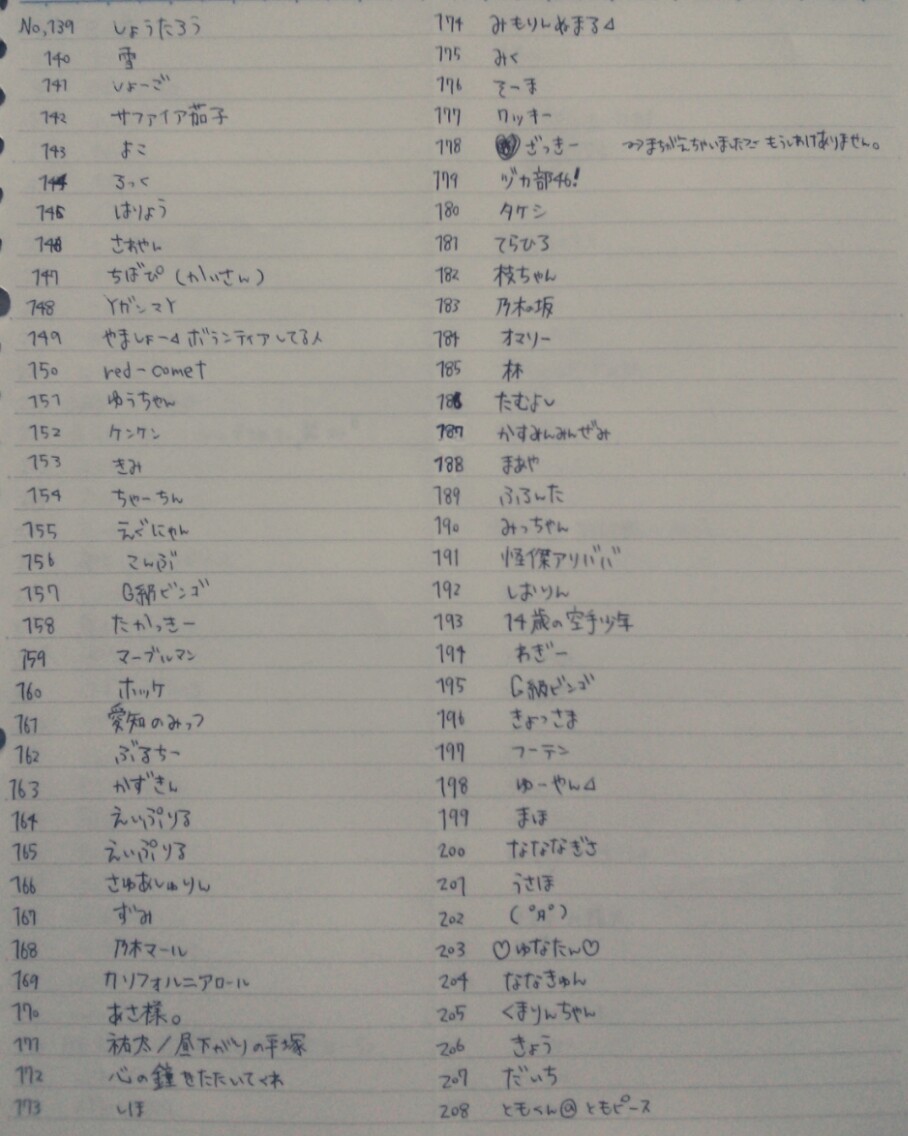 No,139 しょうたろう
140 雪
141 しょーご
142 サファイア茄子
143 よこ
144 ろっく
145 はりょう
146 さわやん
147 ちばぴ(かいさん)
148 YガシマY
149 やましょー⊿ボランティアしてる人
150 red-comet
151 ゆうちゃん
152 ケンケン
153 きみ
154 ちゃーちん
155 えぐにゃん
156 こんぶ
157 G級ビンゴ
158 たかっきー
159 マーブルマン
160 ホッケ
161 愛知のみっつ
162 ぶるちー
163 かずきん
164 えいぷりる
165 えいぷりる
166 さゆあしゅりん
167 ずみ
168 乃木マール
169 カリフォルニアロール
170 あさ様。
171 祐太/昼下がりの平塚
172 心の鐘をたたいてくれ
173 しほ
174 みもりんぬまる⊿
175 みく
176 そーま
177 ワッキー
178 ざっきー →まちがえちゃいました^^ もうしわけありません。
179 ヅカ部46!
180 タケシ
181 てらひろ
182 枝ちゃん
183 乃木の坂
184 オマリー
185 林
186 たむよし
187 かすみんみんぜみ
188 まあや
189 ふろんた
190 みっちゃん
191 怪傑アリババ
192 しおりん
193 14歳の空手少年
194 わぎー
195 G級ビンゴ
196 きょっさま
197 フーテン
198 ゆーやん⊿
199 まほ
200 なななぎさ
201 うさほ
202 (゚Д゚)
203 ♡ゆなたん♡
204 ななきゅん
205 くまりんちゃん
206 きょう
207 だいち
208 ともくん@ともピース